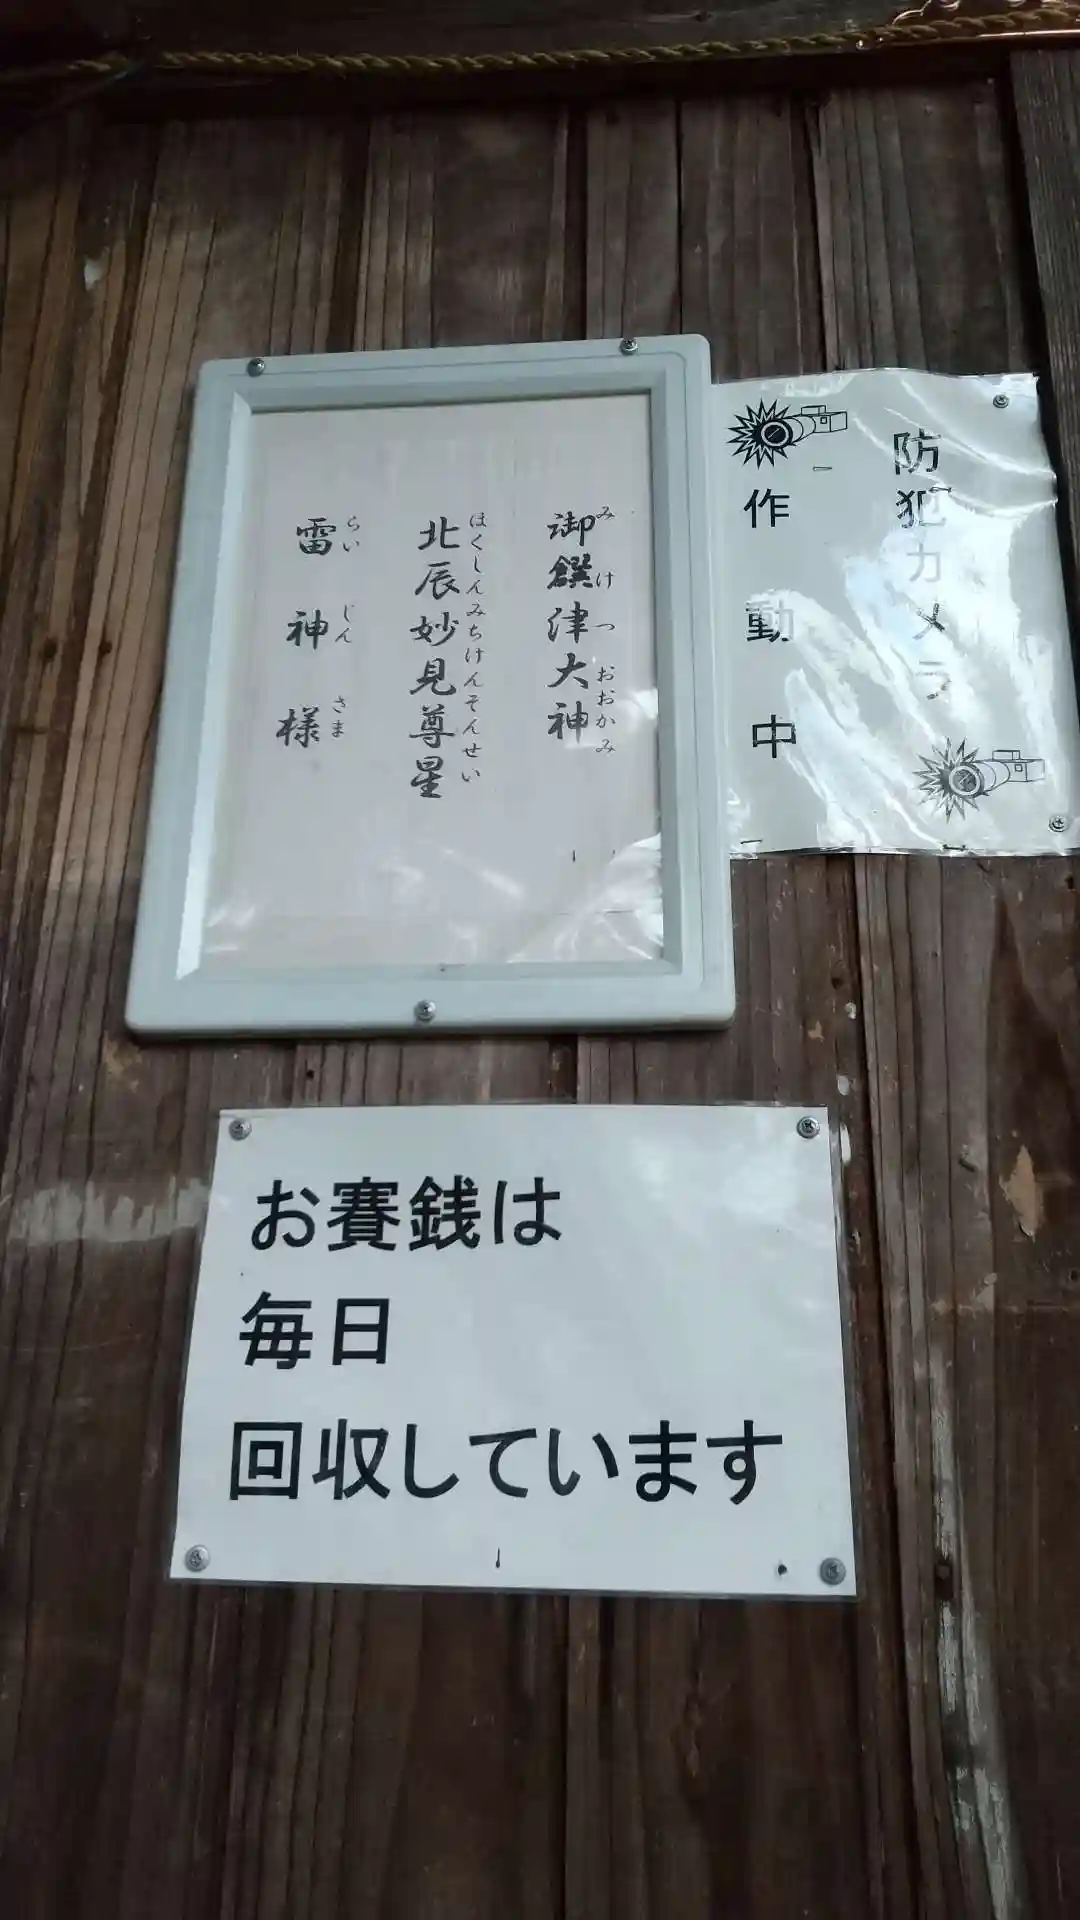 御饌津大神
みけつおおかみ
北辰妙見尊星
ほくしんみちけんそんせい
雷神様
らいじんさま
防犯カメラ
作動中
お賽銭は
毎日
回収しています